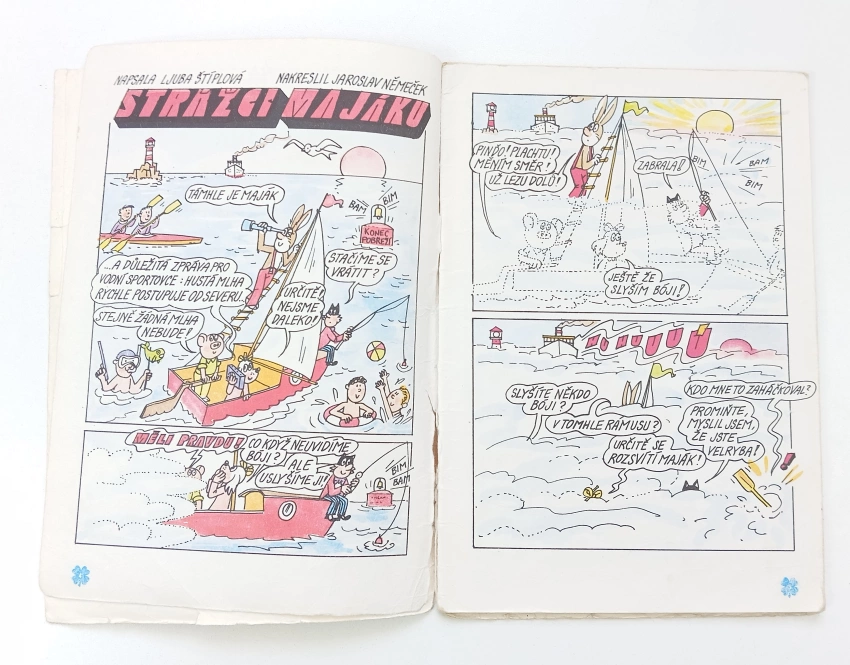 NAPSALA LJUBA ŠTÍPLOVÁ
NAKRESLIL JAROSLAV NĚMEČEK
STRÁŽCI MAJÁKU
TÁMHLE JE MAJÁK
BAM
BIM
KONEC
POBŘEŽÍ
...A DŮLEŽITÁ ZPRÁVA PRO
VODNÍ SPORTOVCE: HUSTÁ MLHA
RYCHLE POSTUPUJE OD SEVERU.
STAČÍME SE
VRÁTIT?
URČITĚ!
NEJSME
DALEKO!
STEJNĚ ŽÁDNÁ MLHA
NEBUDE!
MĚLI PRAVDU!
CO KDYŽ NEUVIDÍME
BÓJI?
ALE
USLYŠÍME JI!
BIM
BAM
PINĎO! PLACHTU!
MĚNÍM SMĚR!
UŽ LEZU DOLŮ!
ZABRALA!
BIM
BAM
BIM
JEŠTĚ ŽE
SLYŠÍM BÓJI!
SLYŠÍTE NĚKDO
BÓJI?
V TOMHLE RAMUSU?
URČITĚ SE
ROZSVÍTÍ MAJÁK!
KDO MNE TO ZAHÁČKOVAL?
PROMIŇTE,
MYSLIL JSEM,
ŽE JSTE
VELRYBA!